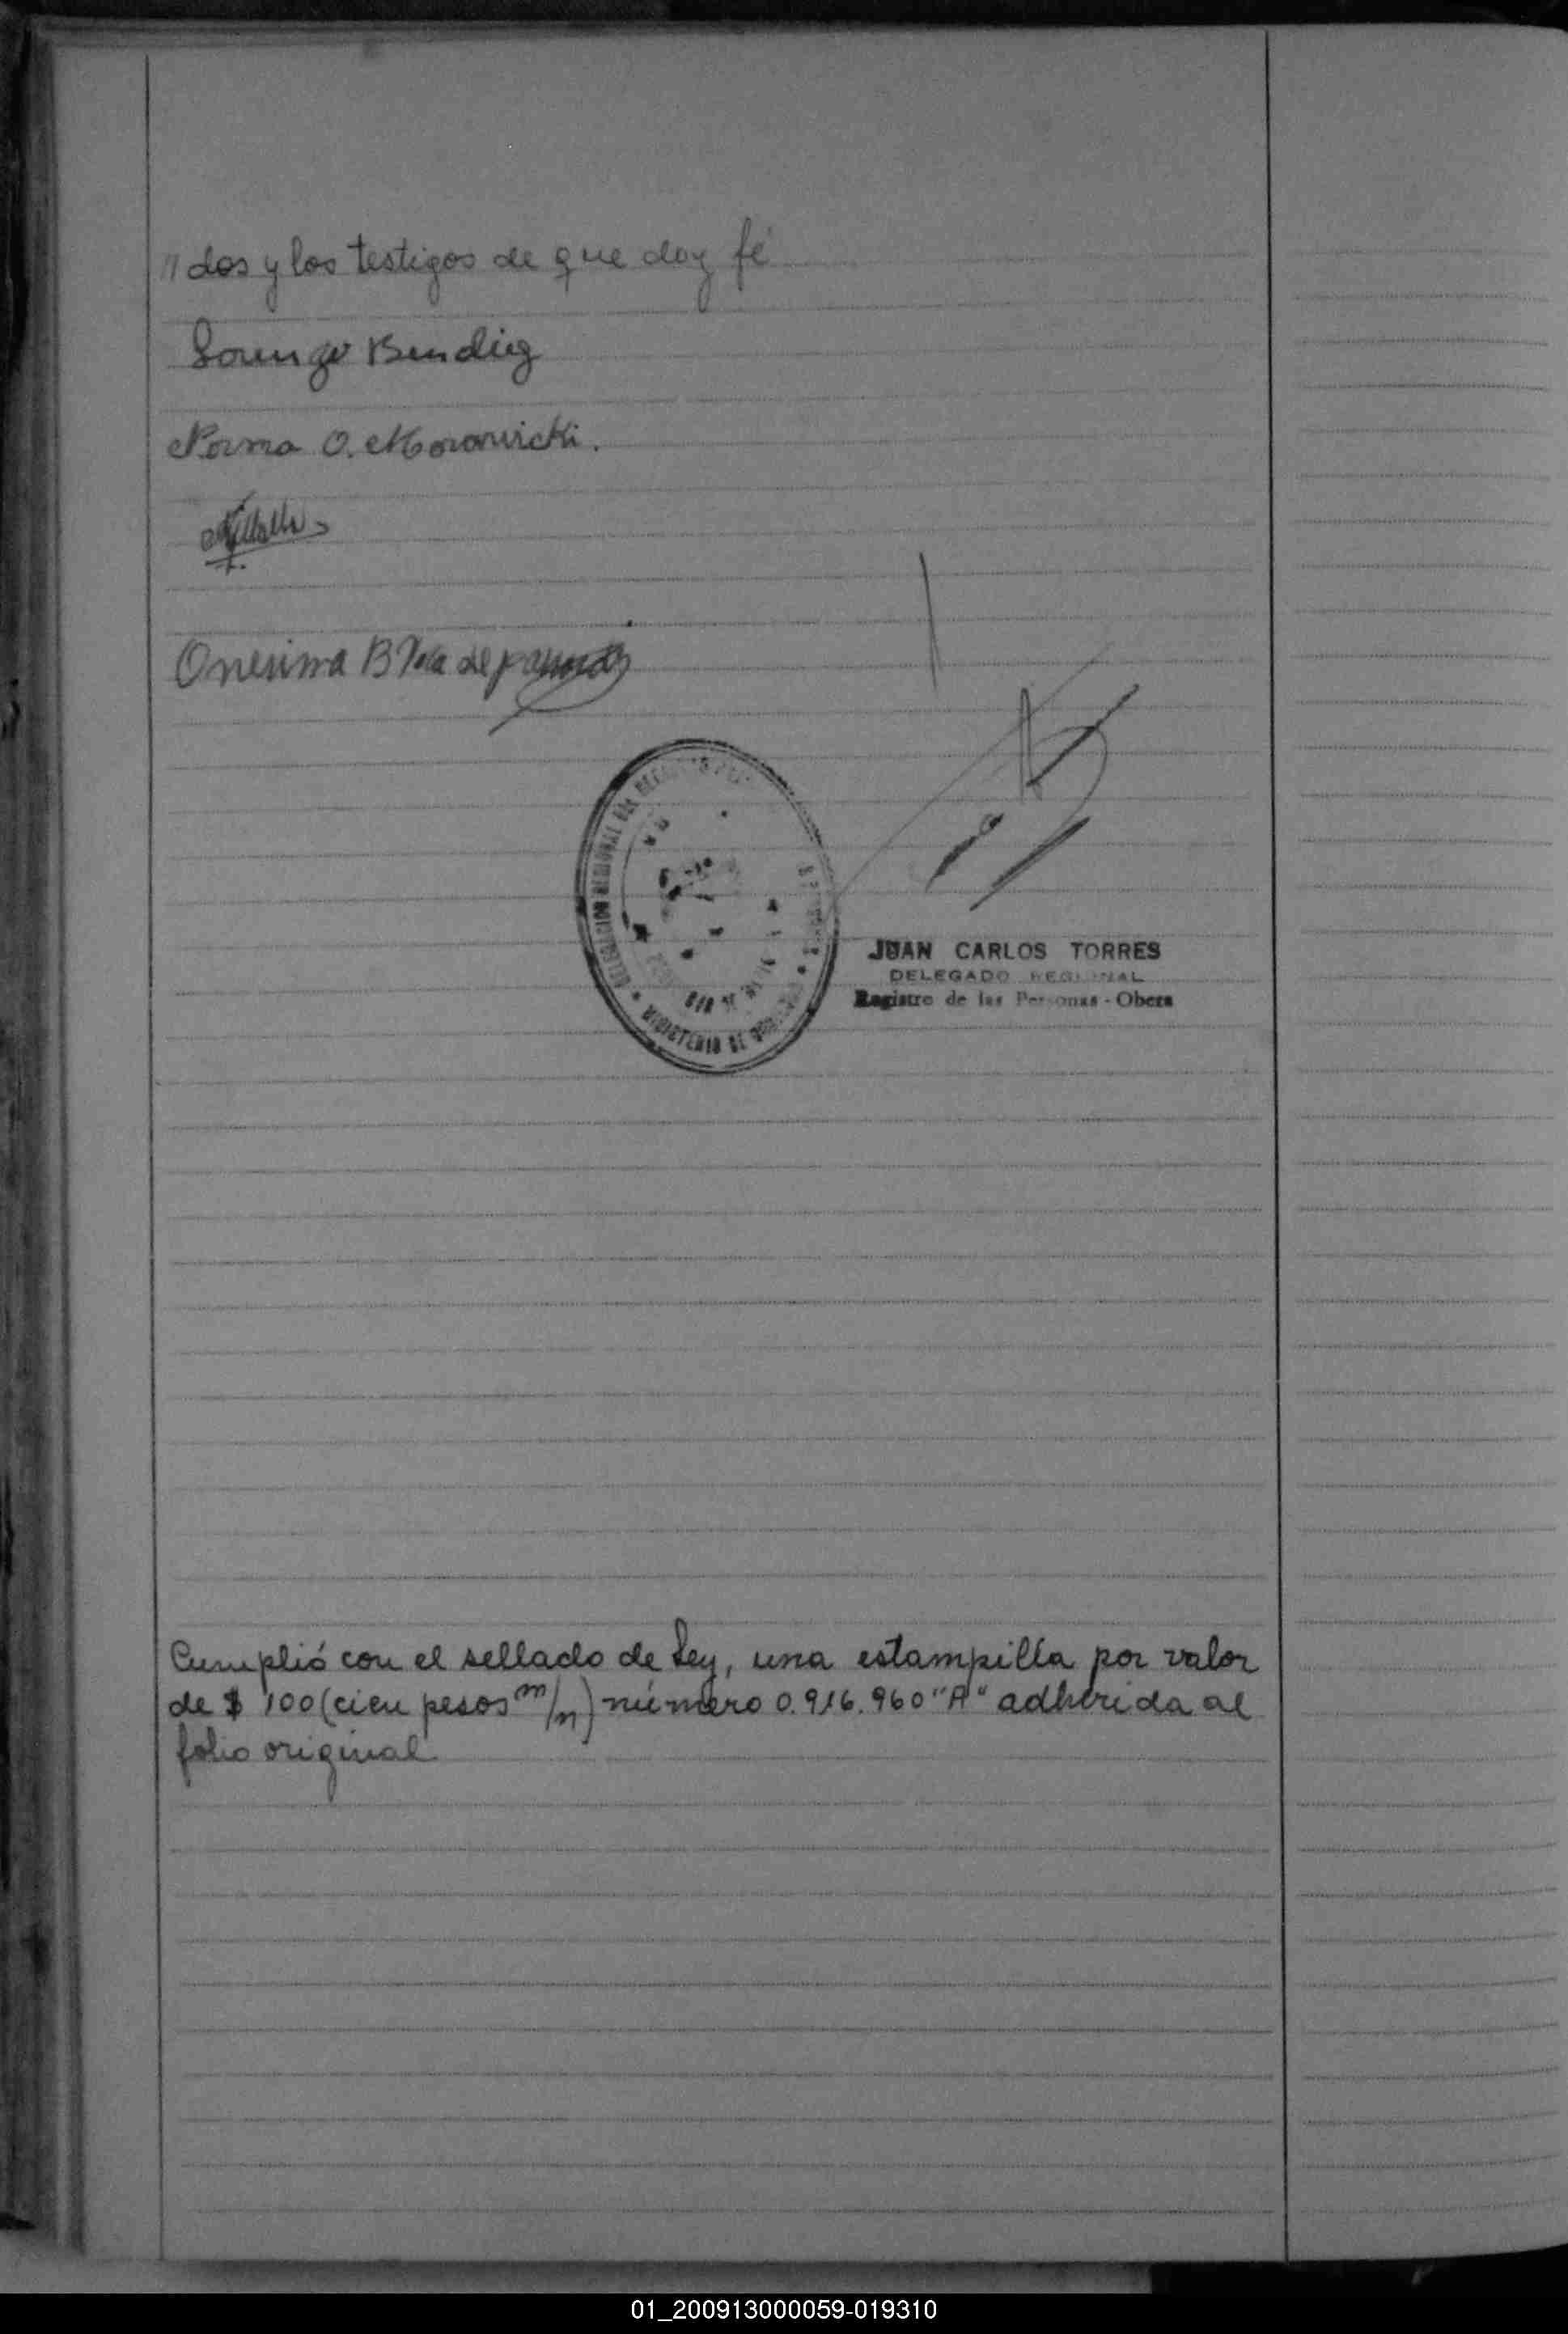 "dos y los testigos de que doy fé
Lorenzo Bendig
Norma O. Morawicki.
Onesima B
JUAN CARLOS TORRES
DELEGADO REGIONAL
Registro de las Personas - Obera
DELEGACION REGIONAL DEL
MINISTERIO DE
Cumplió con el sellado de Ley, una estampilla por valor
de $ 100 (cien pesos m/n) número 0.916.960 "A" adherida al
folio original
01_200913000059-019310